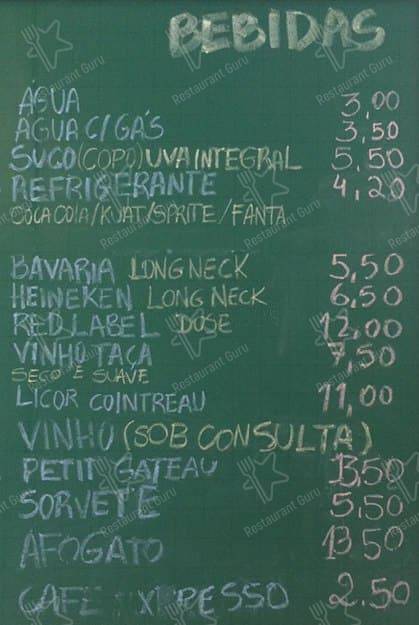 BEBIDAS
ÁGUA 3,00
ÁGUA C/GÁS 3,50
SUCO (COPO) UVA INTEGRAL 5,50
REFRIGERANTE 4,20
COCA COLA/KUAT/SPRITE/FANTA
BAVARIA LONG NECK 5,50
HEINEKEN LONG NECK 6,50
RED LABEL DOSE 12,00
VINHO TAÇA 7,50
SECO E SUAVE
LICOR COINTREAU 11,00
VINHO (SOB CONSULTA)
PETIT GATEAU 13,50
SORVETE 5,50
AFOGATO 13,50
CAFÉ EXPRESSO 2.50
Restaurant Guru